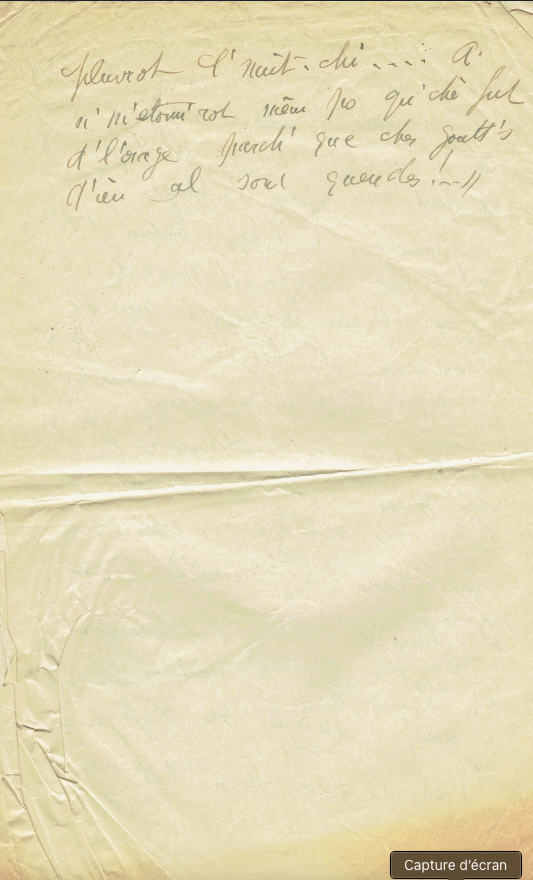 pluvrot l'nuit-chi.... A'
n' m'étonn'rot même po qu'chè fut
d'l'orage parch'que ches goutt's
d'ieu al sont quendes!..»
Capture d'écran